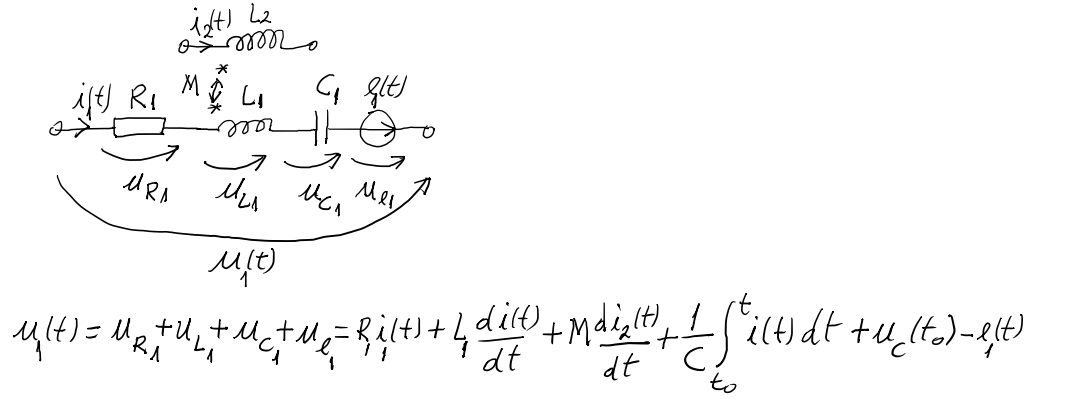 i₂(t) L₂
M * *
i₁(t) R₁ L₁ C₁ e₁(t)
u_R₁ u_L₁ u_C₁ u_e₁
u₁(t)
u₁(t) = u_R₁ + u_L₁ + u_C₁ + u_e₁ = R₁i₁(t) + L₁ di(t)/dt + M di₂(t)/dt + 1/C ∫_t₀^t i(t) dt + u_C(t₀) - e₁(t)